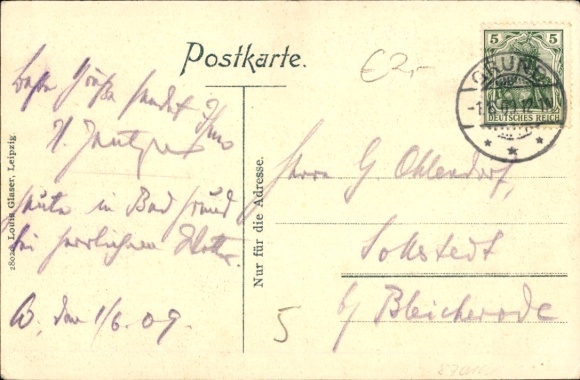 Postkarte.
€2,-
5 5
DEUTSCHES REICH
GRUND
-1.6.09.12-1N
Beste Grüße sendet Ihnen
H.
heute in Bad Grund
bei herrlichem Wetter.
B. den 1/6.09.
28028 Louis Glaser, Leipzig.
Nur für die Adresse.
Herrn G Ohlendorf,
Sollstedt
b/ Bleicherode
5